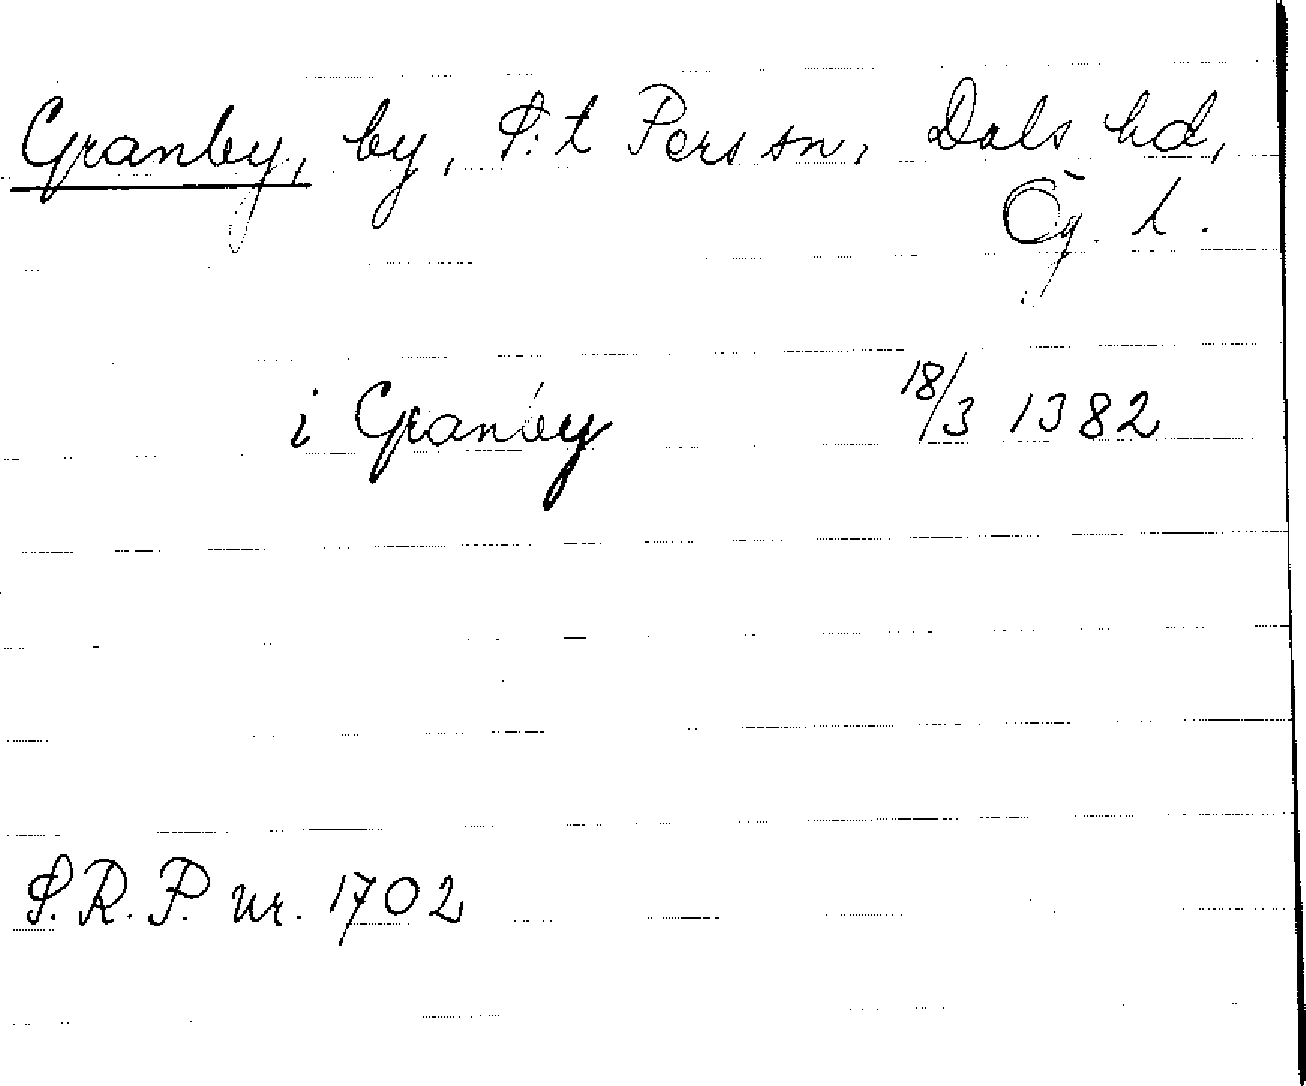 Granby, by, S:t Pers sn, Dals hd,
Ög. l.
i Granby 18/3 1382
S.R.P. nr. 1702